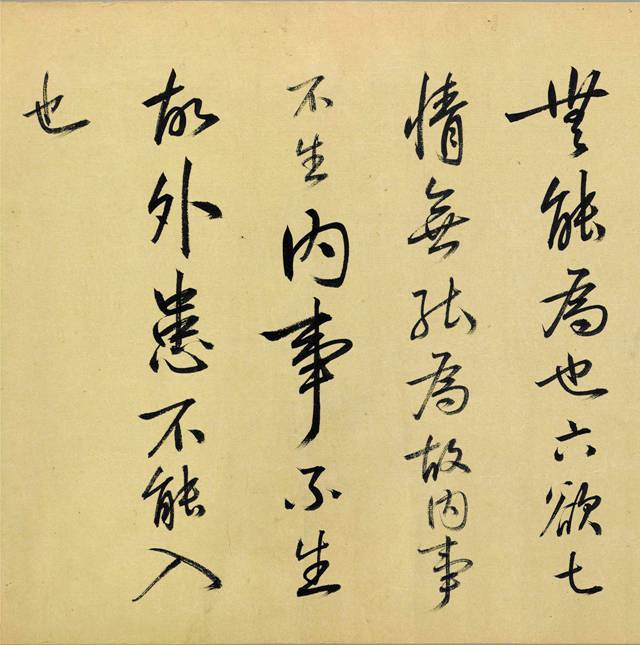 無能為也六欲七
情無能為故内事
不生内事不生
故外患不能入
也